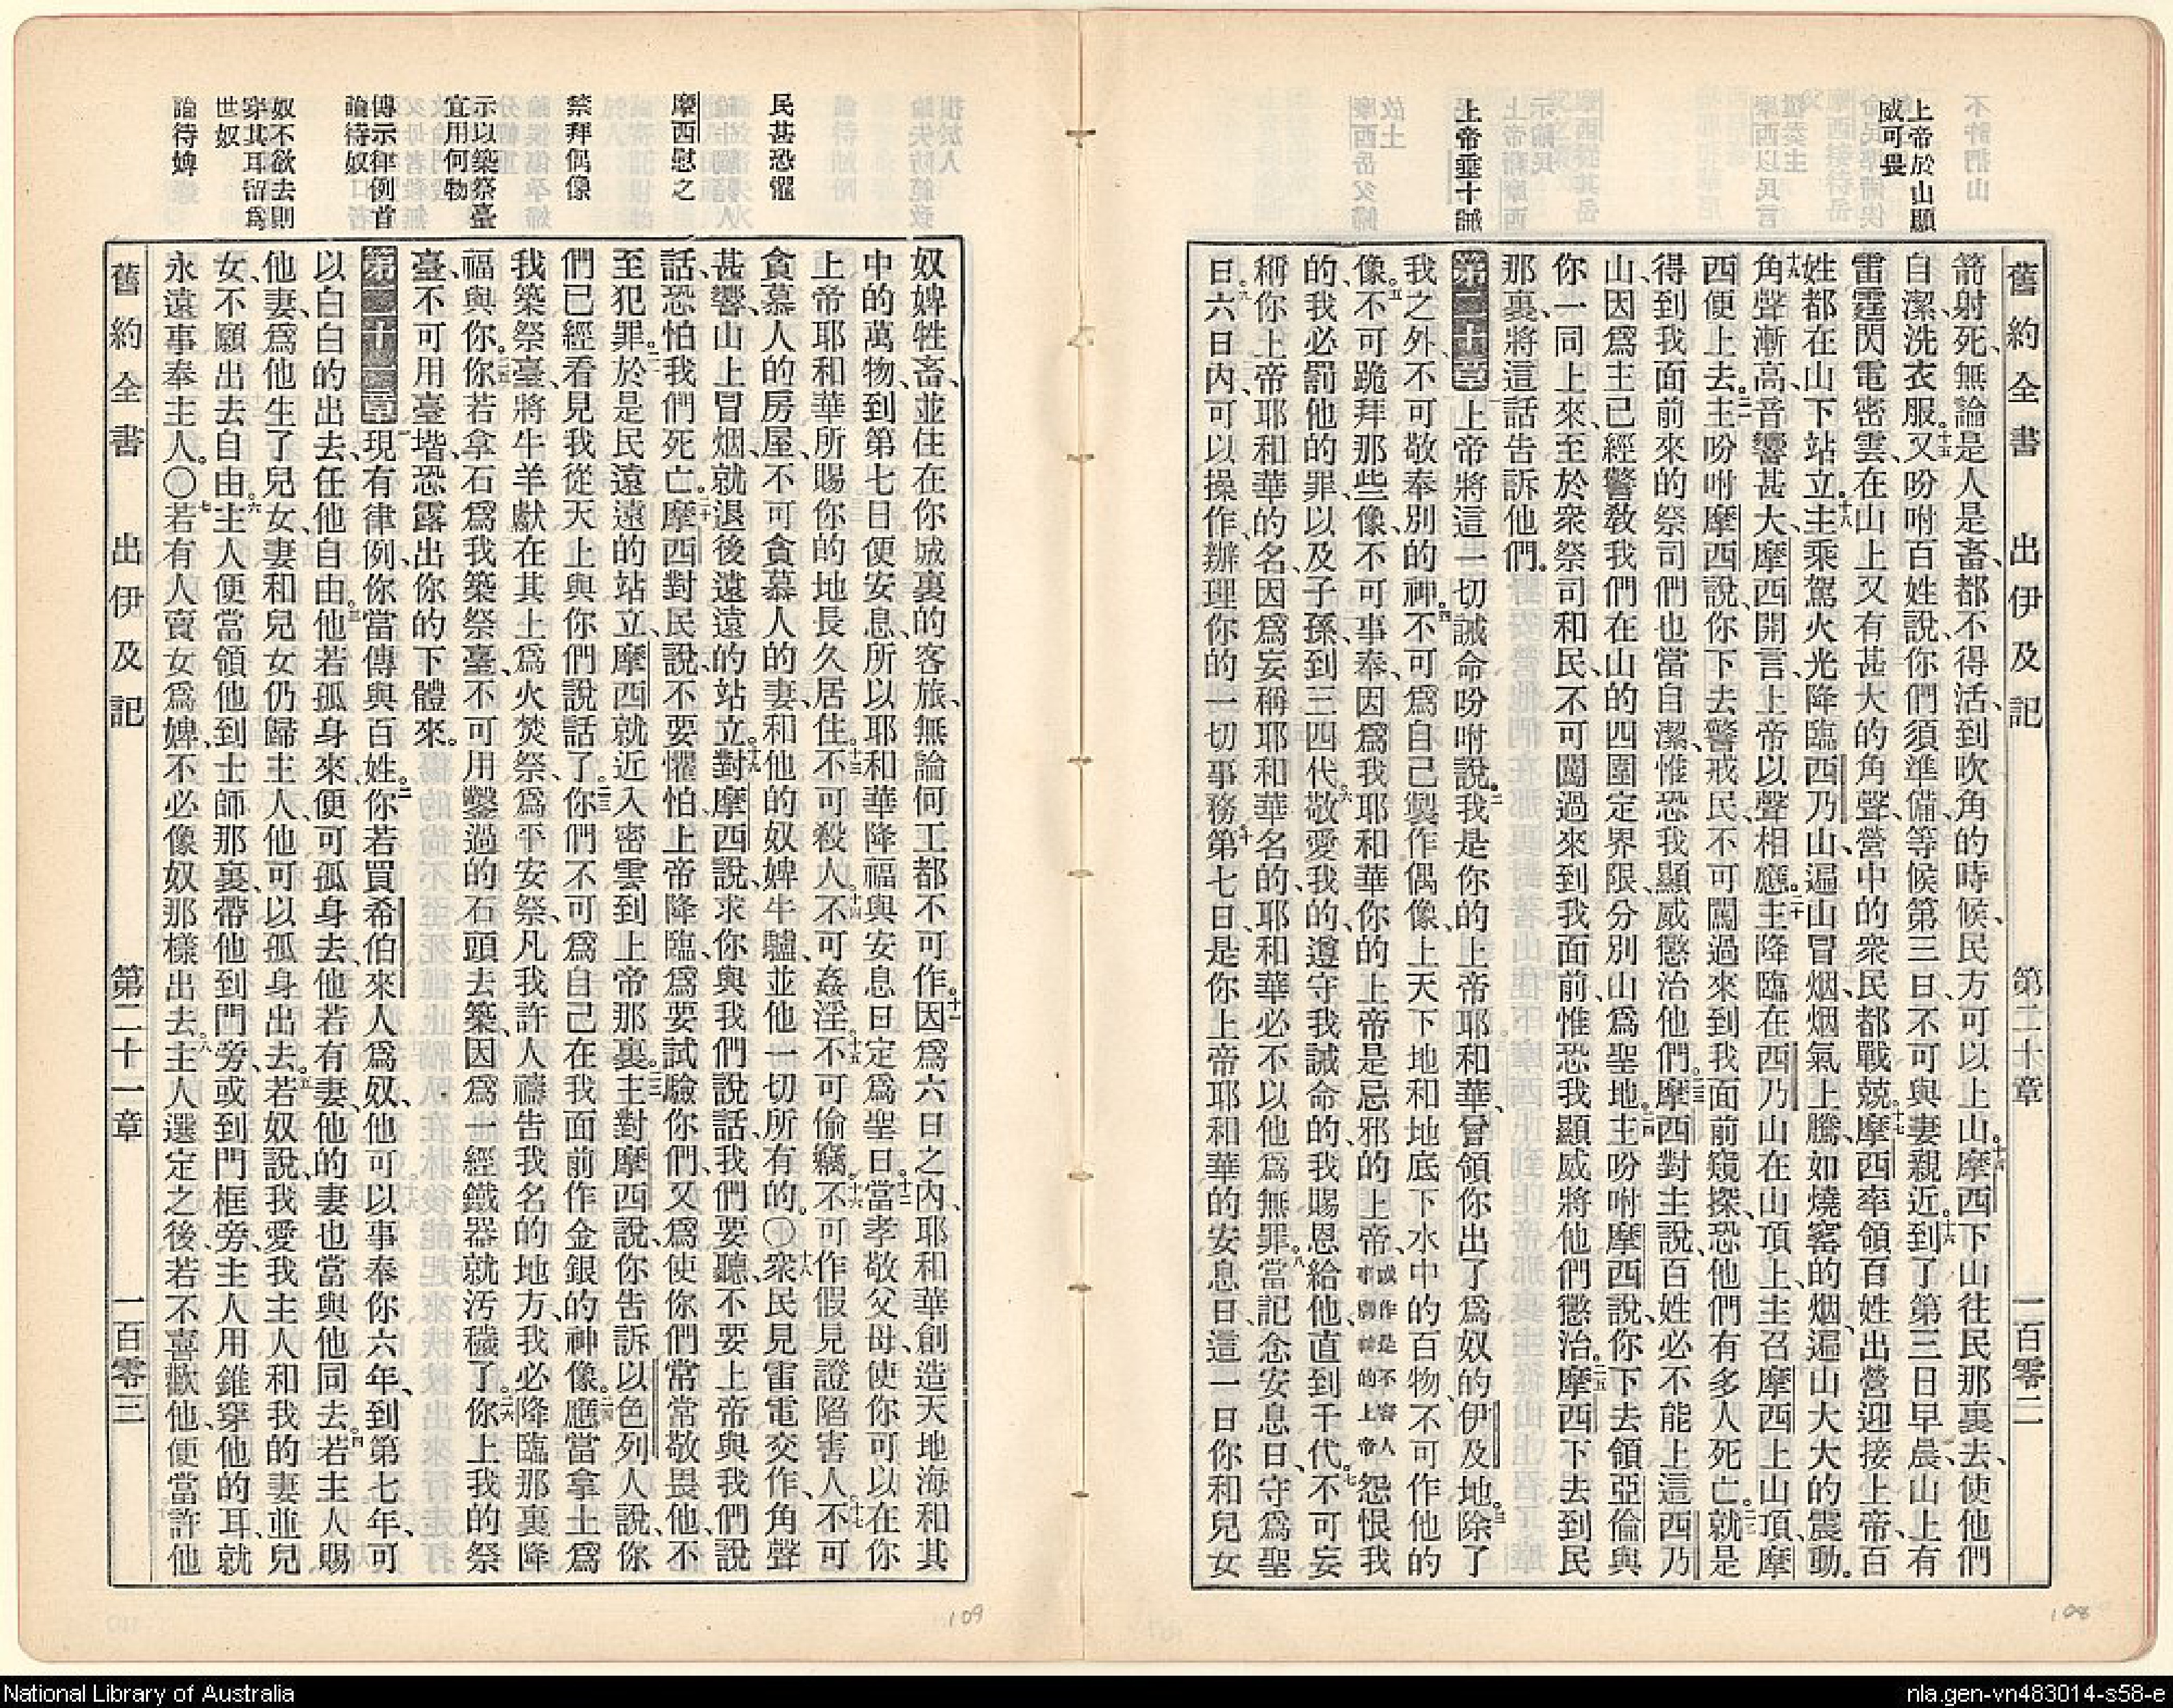 舊約全書 出伊及記 第二十章 一百零二
上帝於山顯
威可畏
上帝垂十誡
箭射死、無論是人是畜、都不得活、到吹角的時候、民方可以上山。十四摩西下山往民那裏去、使他們
自潔、洗衣服。十五又吩咐百姓說、你們須準備、等候第三日、不可與妻親近。十六到了第三日早晨、山上有
雷霆閃電密雲、在山上又有甚大的角聲、營中的衆民都戰兢。十七摩西率領百姓出營迎接上帝、百
姓都在山下站立。十八主乘駕火光降臨西乃山、遍山冒烟、烟氣上騰、如燒窰的烟、遍山大大的震動。
十九角聲漸高、音響甚大、摩西開言、上帝以聲相應。二十主降臨在西乃山、在山頂上、主召摩西上山頂、摩
西便上去。二一主吩咐摩西說、你下去警戒民、不可闖過來到我面前窺探、恐他們有多人死亡。二二就是
得到我面前來的祭司們、也當自潔、惟恐我顯威懲治他們。二三摩西對主說、百姓必不能上這西乃
山、因爲主已經警敎我們、在山的四圍定界限、分別山爲聖地。二四主吩咐摩西說、你下去領亞倫與
你一同上來、至於衆祭司和民、不可闖過來到我面前、惟恐我顯威將他們懲治。二五摩西下去到民
那裏、將這話告訴他們。
第二十章 一上帝將這一切誡命吩咐說。二我是你的上帝耶和華、曾領你出了爲奴的伊及地。三除了
我之外、不可敬奉別的神。四不可爲自己製作偶像、上天下地和地底下水中的百物、不可作他的
像。五不可跪拜那些像、不可事奉、因爲我耶和華你的上帝、是忌邪的上帝、或作是不容人事別神的上帝怨恨我
的、我必罰他的罪、以及子孫、到三四代。六敬愛我的、遵守我誡命的、我賜恩給他、直到千代。七不可妄
稱你上帝耶和華的名、因爲妄稱耶和華名的、耶和華必不以他爲無罪。八當記念安息日、守爲聖
日。九六日內、可以操作、辦理你的一切事務。十第七日是你上帝耶和華的安息日、這一日你和兒女
民甚恐懼
摩西慰之
禁拜偶像
示以築祭臺
宜用何物
傳示律例首
論待奴
奴不欲去則
穿其耳留爲
世奴
論待婢
奴婢牲畜、並住在你城裏的客旅、無論何工都不可作。十一因爲六日之內、耶和華創造天地海和其
中的萬物、到第七日便安息、所以耶和華降福與安息日、定爲聖日。十二當孝敬父母、使你可以在你
上帝耶和華所賜你的地長久居住。十三不可殺人。十四不可姦淫。十五不可偷竊。十六不可作假見證陷害人。十七不可
貪慕人的房屋、不可貪慕人的妻、和他的奴婢牛驢、並他一切所有的。〇十八衆民見雷電交作、角聲
甚響、山上冒烟、就退後遠遠的站立。十九對摩西說、求你與我們說話、我們要聽、不要上帝與我們說
話、恐怕我們死亡。二十摩西對民說、不要懼怕、上帝降臨、爲要試驗你們、又爲使你們常常敬畏他、不
至犯罪。二一於是民遠遠的站立、摩西就近入密雲到上帝那裏。二二主對摩西說、你告訴以色列人說、你
們已經看見我從天上與你們說話了。二三你們不可爲自己在我面前作金銀的神像。二四應當拿土爲
我築祭臺、將牛羊獻在其上、爲火焚祭、爲平安祭、凡我許人禱告我名的地方、我必降臨那裏降
福與你。二五你若拿石爲我築祭臺、不可用鑿過的石頭去築、因爲一經鐵器就汚穢了。二六你上我的祭
臺、不可用臺堦、恐露出你的下體來。
第二十一章 一現有律例、你當傳與百姓。二你若買希伯來人爲奴、他可以事奉你六年、到第七年、可
以白白的出去、任他自由。三他若孤身來、便可孤身去、他若有妻、他的妻也當與他同去。四若主人賜
他妻、爲他生了兒女、妻和兒女仍歸主人、他可以孤身出去。五若奴說、我愛我主人和我的妻並兒
女、不願出去自由。六主人便當領他到士師那裏、帶他到門旁、或到門框旁、主人用錐穿他的耳、就
永遠事奉主人。〇七若有人賣女爲婢、不必像奴那樣出去。八主人選定之後、若不喜歡他、便當許他
舊約全書 出伊及記 第二十一章 一百零三
109
108
National Library of Australia
nla.gen-vn483014-s58-e